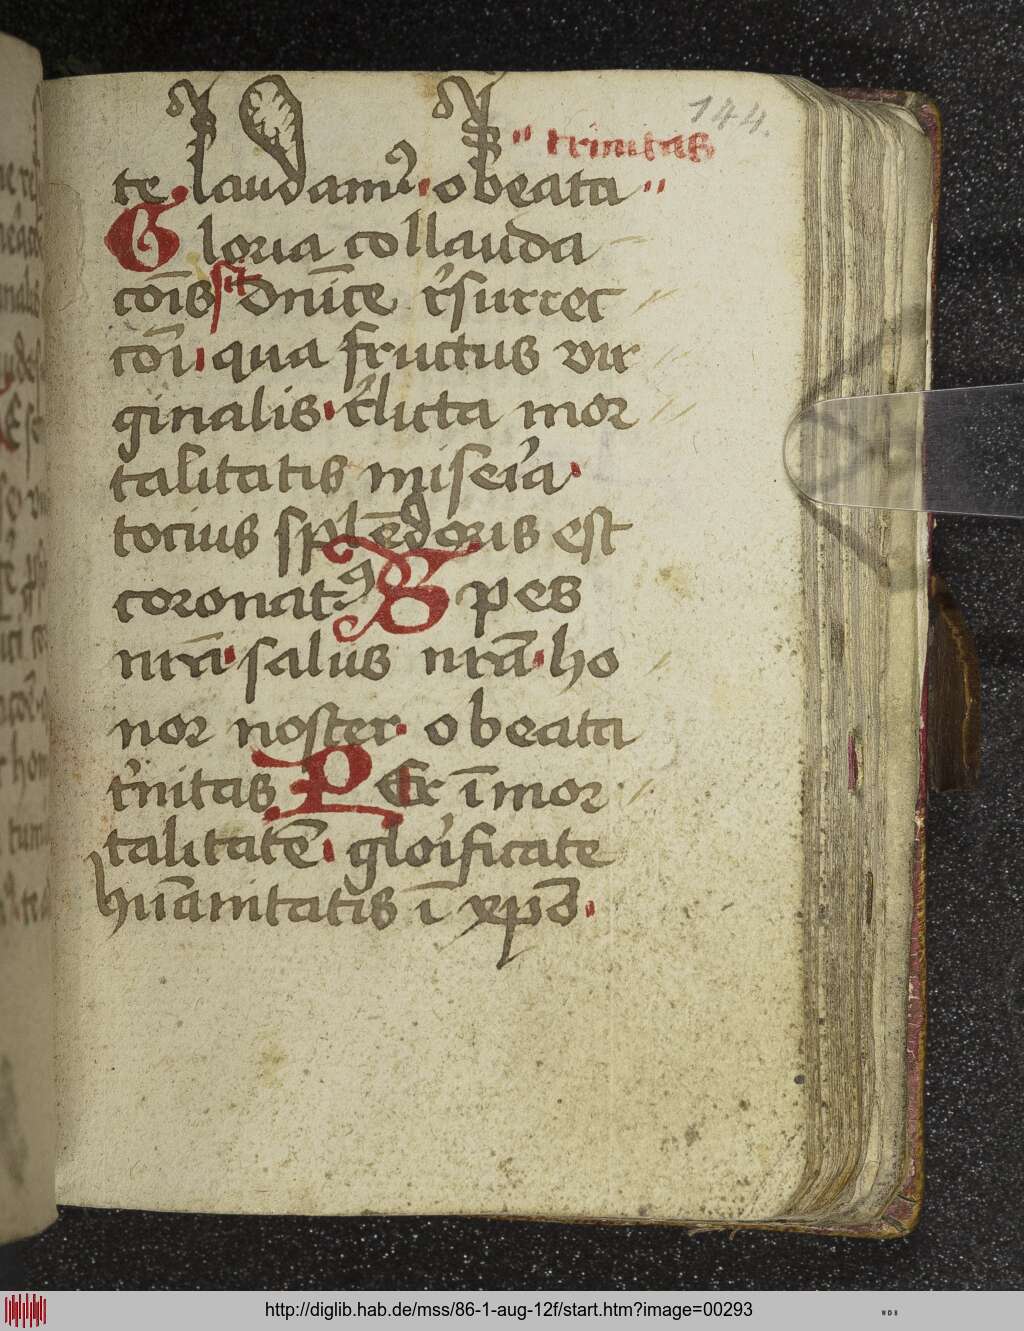 144.
" trinitas
te laudamꝰ · o beata "
Gloria collauda
cōis sit dn̄ice r̉surrec
cōi · qua fructus vir
ginalis · r̉licta mor
talitatis miseỉa ·
tocius splēdoris est
coronatꝰ Spes
nrā · salus nrā · ho
nor noster · o beata
tr̉nitas Per īmor
talitatē · gloỉficate
hūanitatis ī xpō ·
http://diglib.hab.de/mss/86-1-aug-12f/start.htm?image=00293